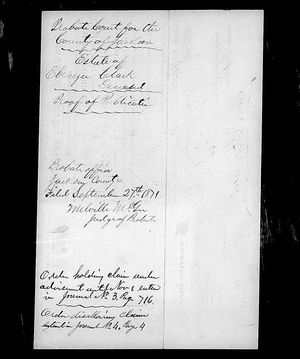 Probate Court for the
County of Jackson
Estate of
Ebenezer Clark
Deceased
Proof of Publication
Probate office
Jackson County
Filed September 27th 1871
Melville
Judge of Probate
Order holding claim under
advisement until Nov 1 entered
in Journal No. 3. Page 716.
Order disallowing claim
entered in journal No. 4. Page 4